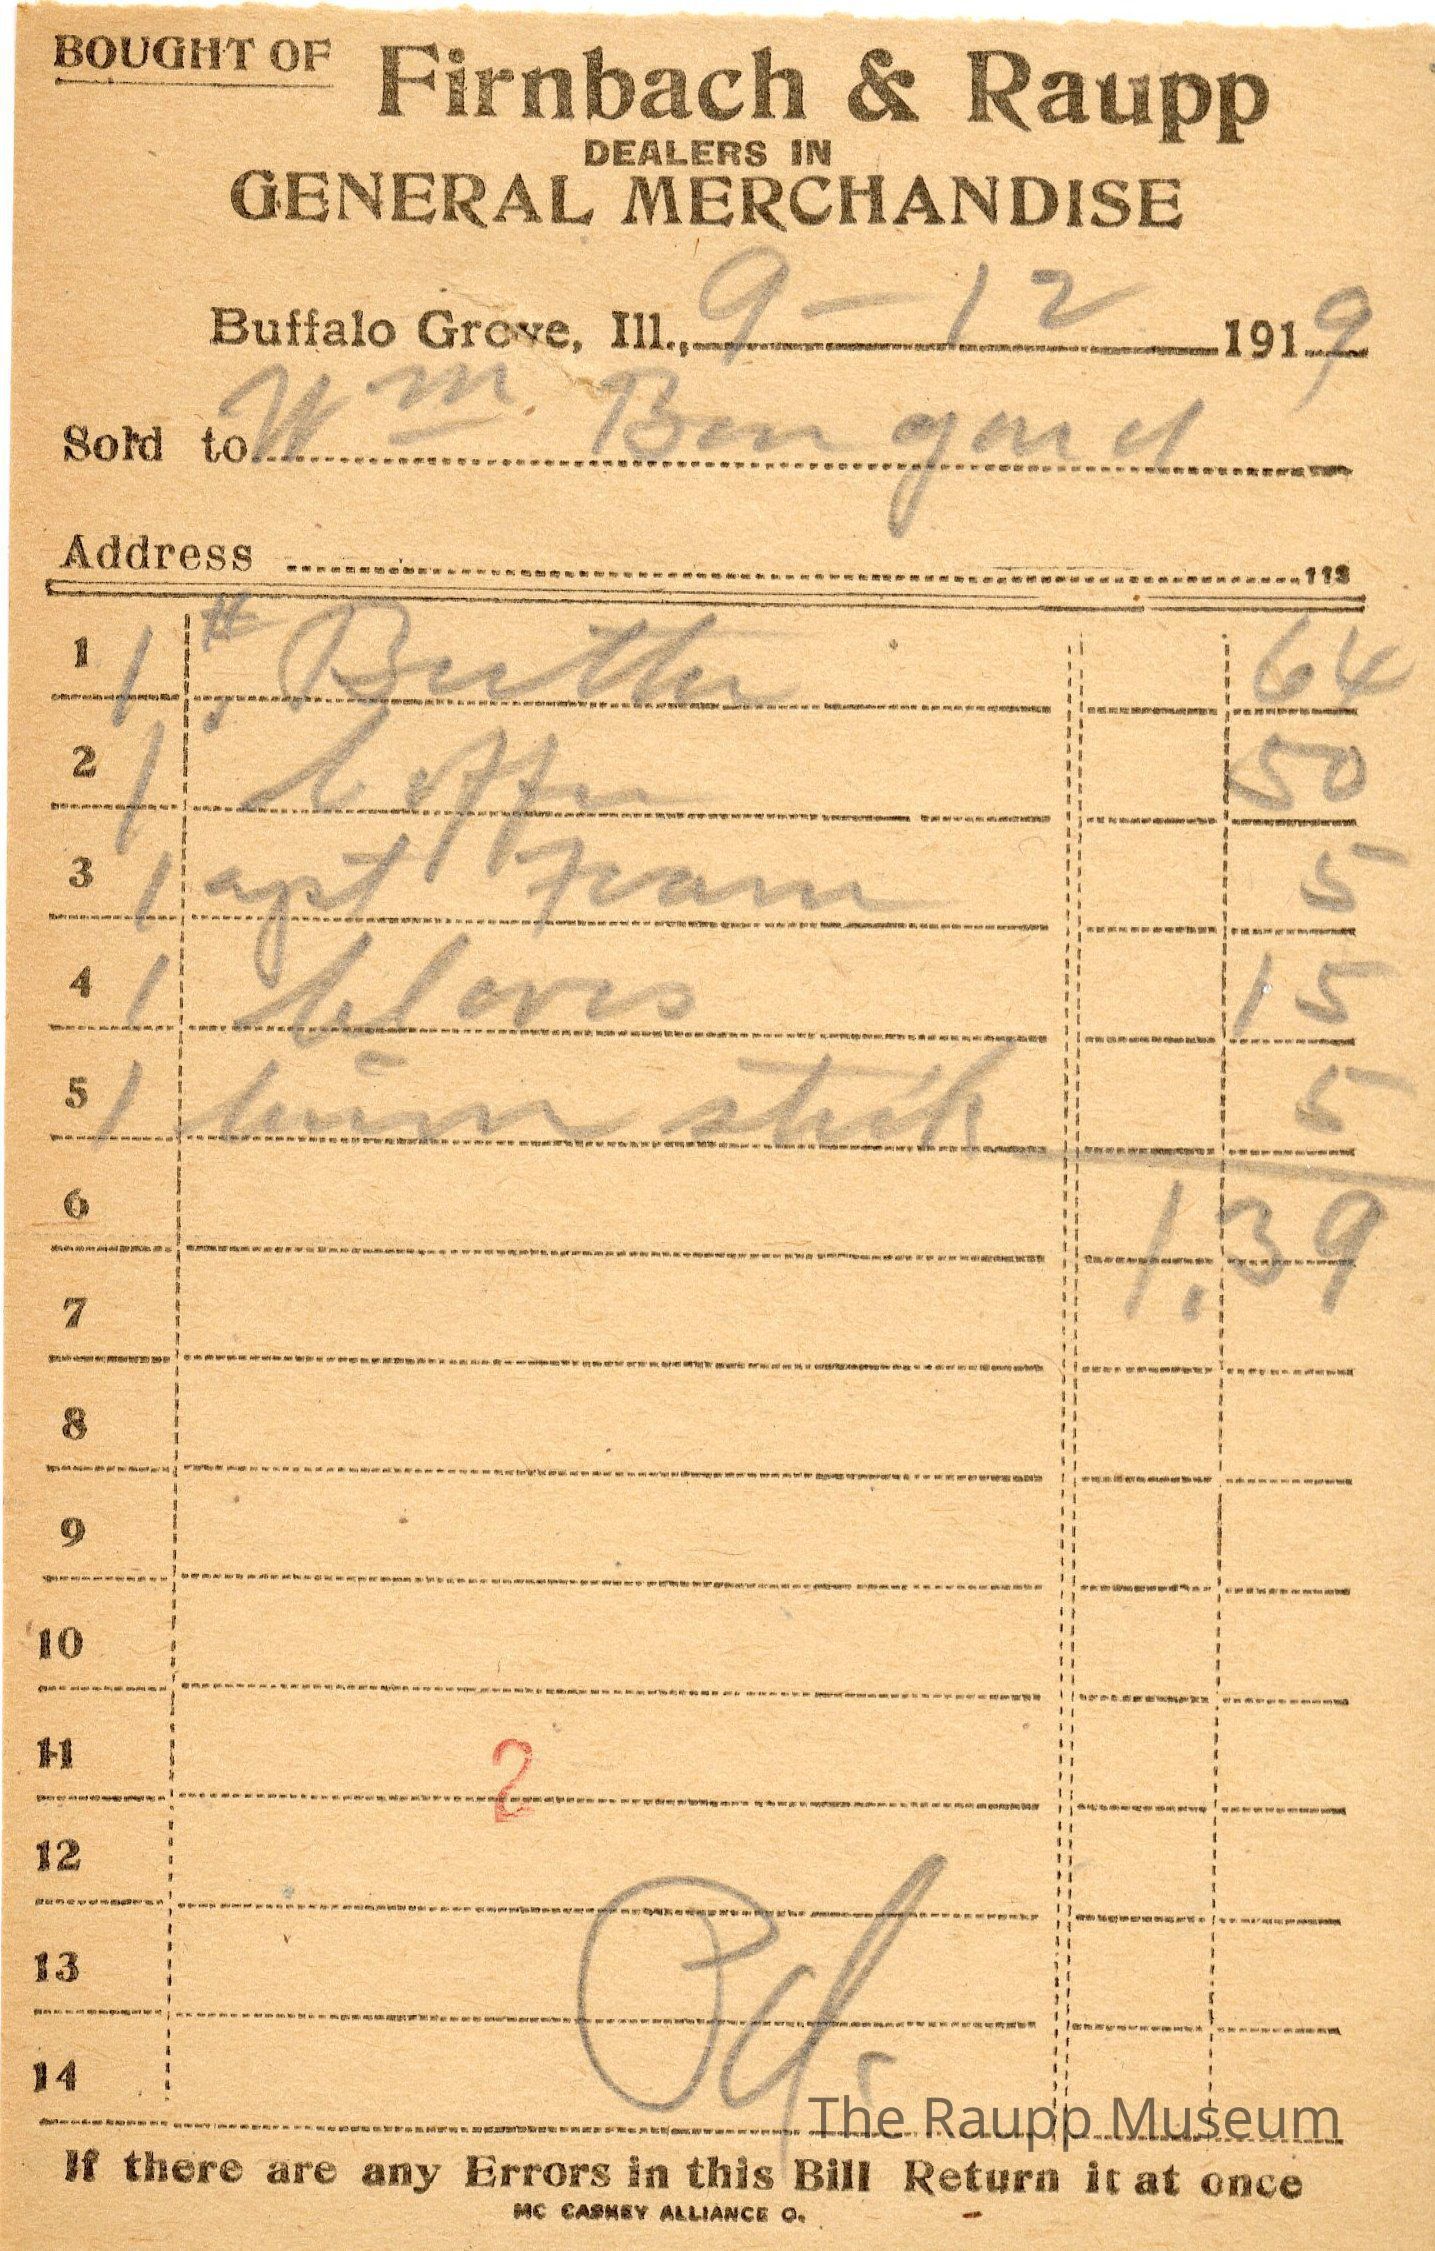 BOUGHT OF Firnbach & Raupp
DEALERS IN
GENERAL MERCHANDISE
Buffalo Grove, Ill., 9-12 1919
Sold to Wm Bongard
Address 113
1 1 # Butter 64
2 1 " Coffee 50
3 1 apt Foam 5
4 1 Cloves 15
5 1 Cinn stick 5
6 1.39
7
8
9
10
11 2
12
13
14
Pd.
The Raupp Museum
If there are any Errors in this Bill Return it at once
MC CASKEY ALLIANCE O.